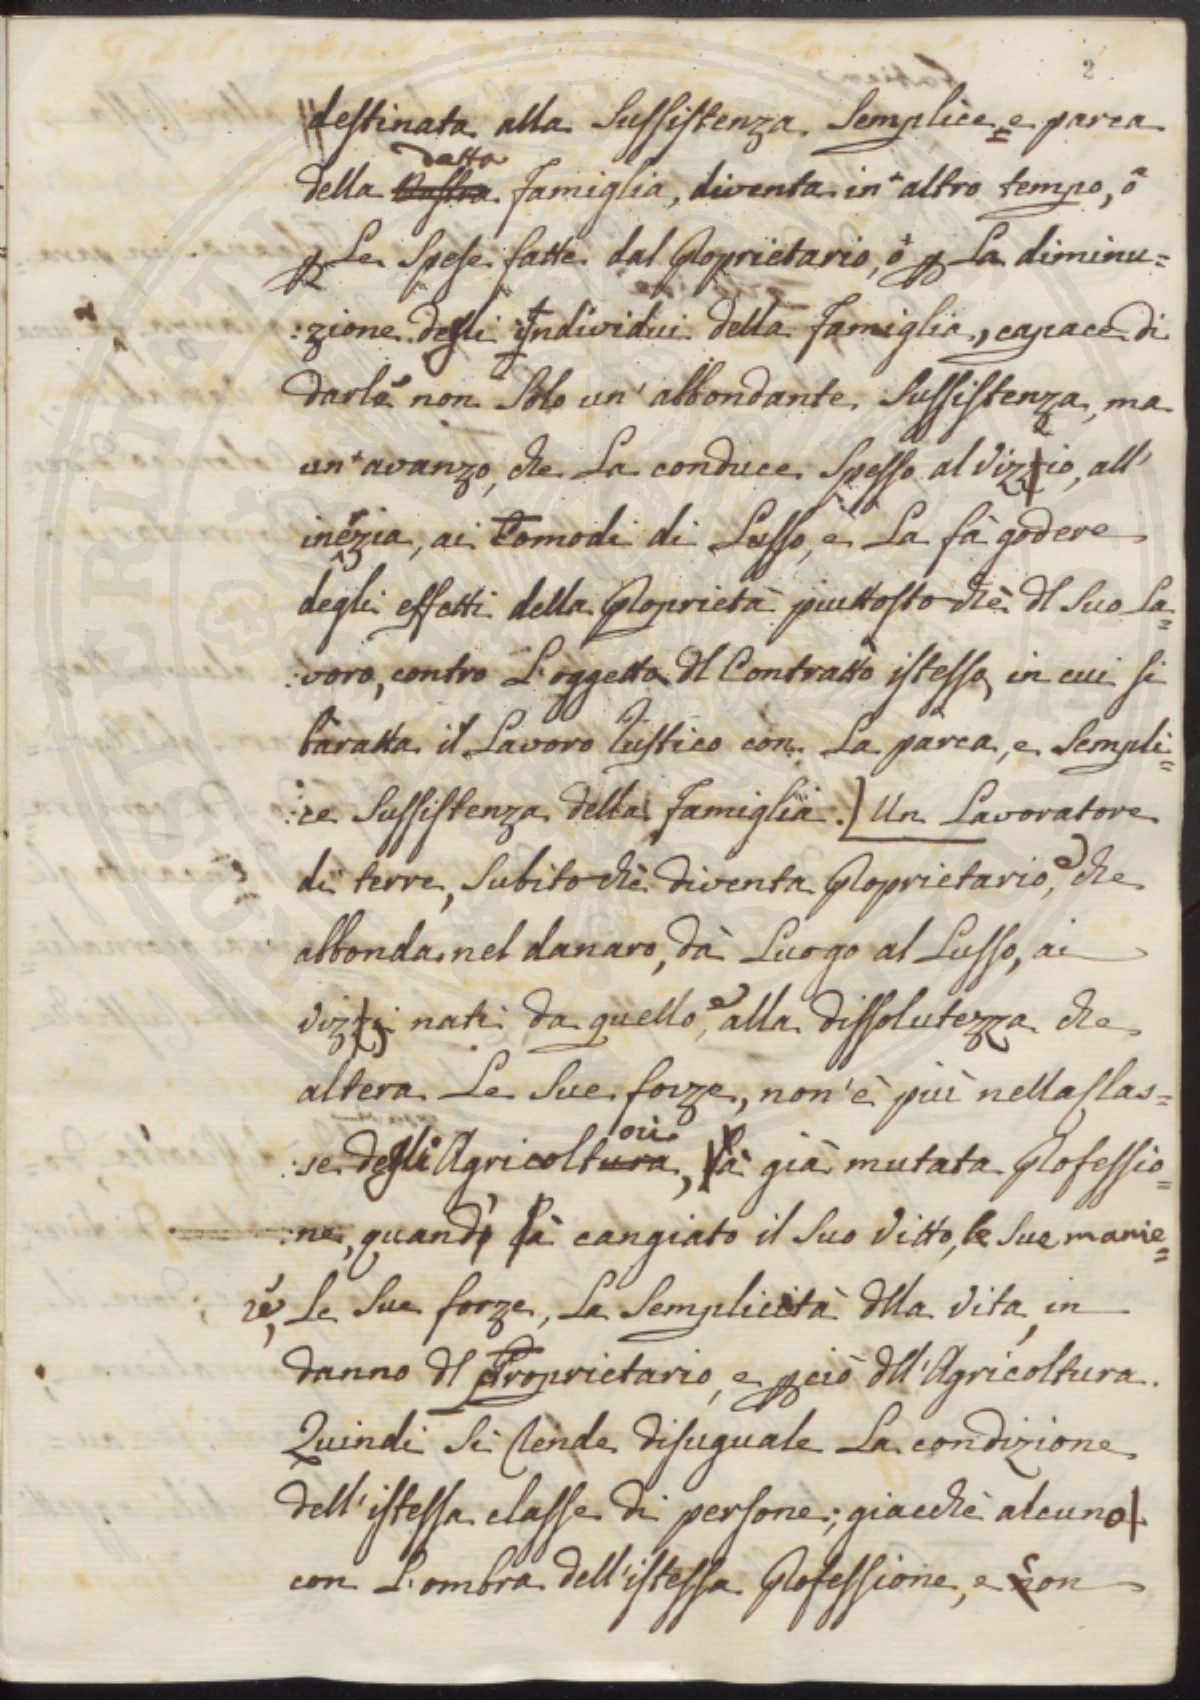 2
destinata alla Sussistenza Semplice e parca
della detta famiglia, diventa in altro tempo, ò
p Le Spese fatte dal Proprietario, ò p La diminu=
:zione degli Individui della famiglia, capace di
darle non solo un' abbondante Sussistenza, ma
un avanzo, che La conduce Spesso al vizio, all'
inezia, ai Comodi di Lusso, e La fà godere
degli effetti della Proprietà piuttosto chè dl suo La=
:voro, contro L'oggetto dl Contratto istesso, in cui si
baratta il Lavoro rustico con La parca, e Sempli=
:ce Sussistenza della famiglia.] Un Lavoratore
di terre, Subito chè diventa Proprietario, e che
abbonda nel danaro, dà Luogo al Lusso, ai
vizj nati da quello, e alla dissolutezza che
altera Le Sue forze, non' è più nella Clas=
:se degli Agricoltori, à già mutata Professio=
:ne, quando à cangiato il Suo Vitto, le Sue manie=
re, Le Sue forze, La Semplicità dlla vita, in
danno dl Proprietario, e pciò dll'Agricoltura.
Quindi Si rende disuguale La condizione
dell'istessa classe di persone; giacchè alcuno
con L'ombra dell'istessa Professione, e con